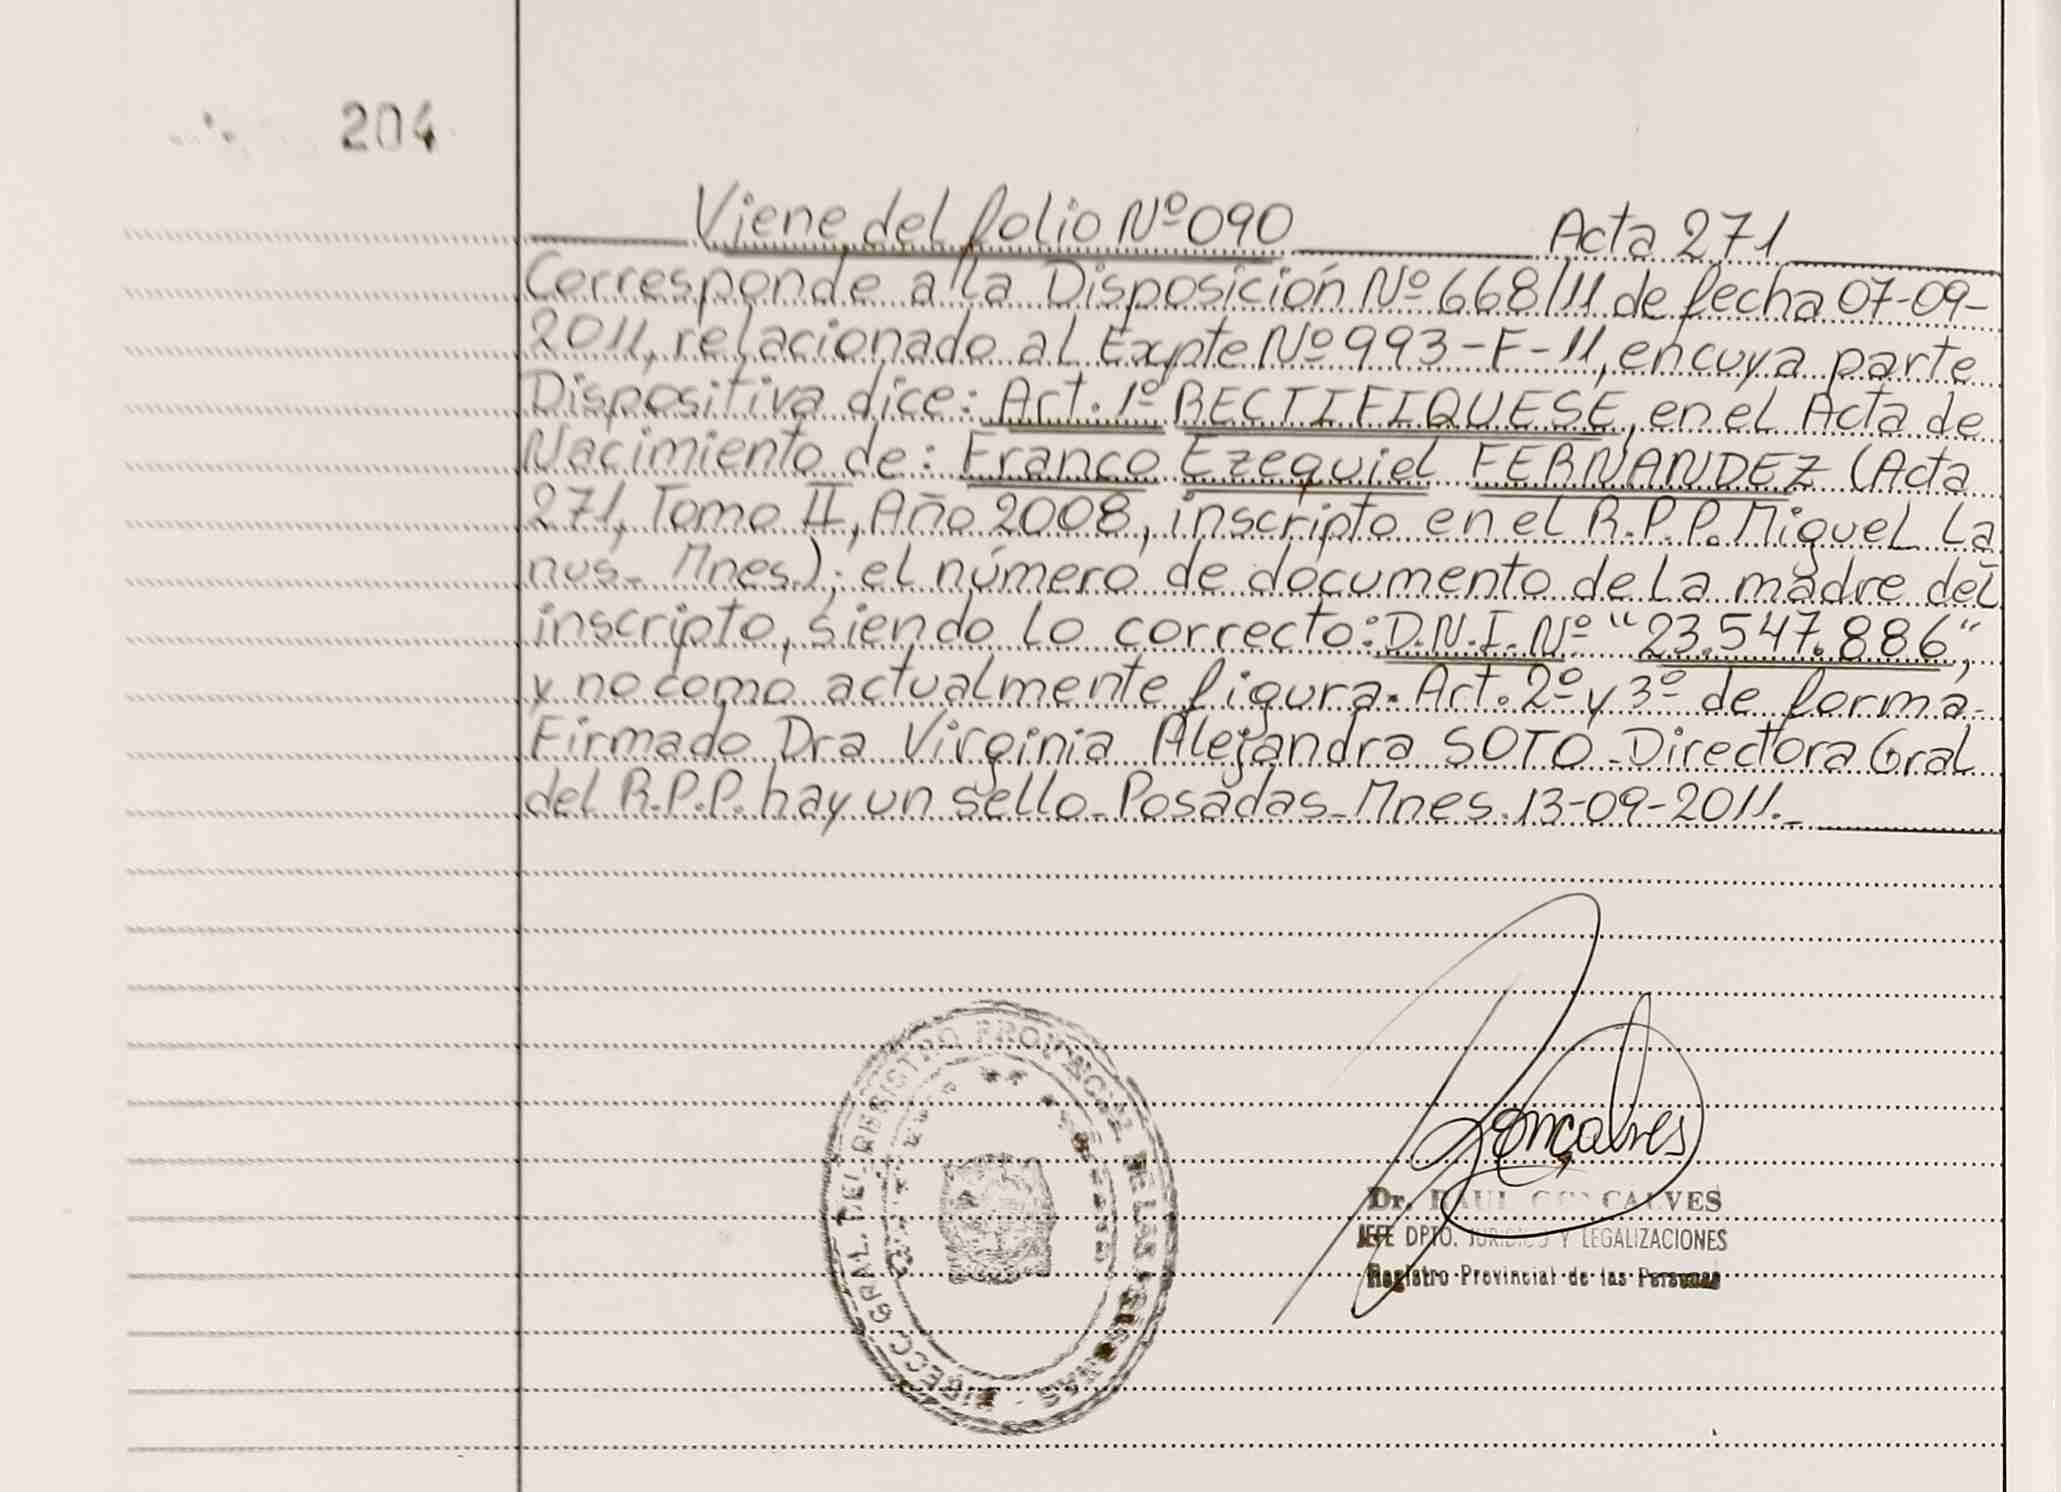 204
Viene del folio Nº 090 Acta 271
Corresponde a la Disposición Nº 668/11 de fecha 07-09-
2011, relacionado al Expte Nº 993-F-11, en cuya parte
Dispositiva dice: Art. 1º RECTIFIQUESE, en el Acta de
Nacimiento de: Franco Ezequiel FERNANDEZ (Acta
271, Tomo II, Año 2008, inscripto en el R.P.P. Miguel La
nus- Mnes.); el número de documento de la madre del
inscripto, siendo lo correcto: D.N.I. Nº "23.547.886",
y no como actualmente figura. Art. 2º y 3º de forma-
Firmado Dra Virginia Alejandra SOTO - Directora Gral
del R.P.P. hay un sello - Posadas - Mnes. 13-09-2011.-
DIRECC GRAL. DEL REGISTRO PROVINCIAL DE LAS PERSONAS
Gonçalves
Dr. RAUL GONCALVES
JEFE DPTO. JURIDICO Y LEGALIZACIONES
Registro Provincial de las Personas